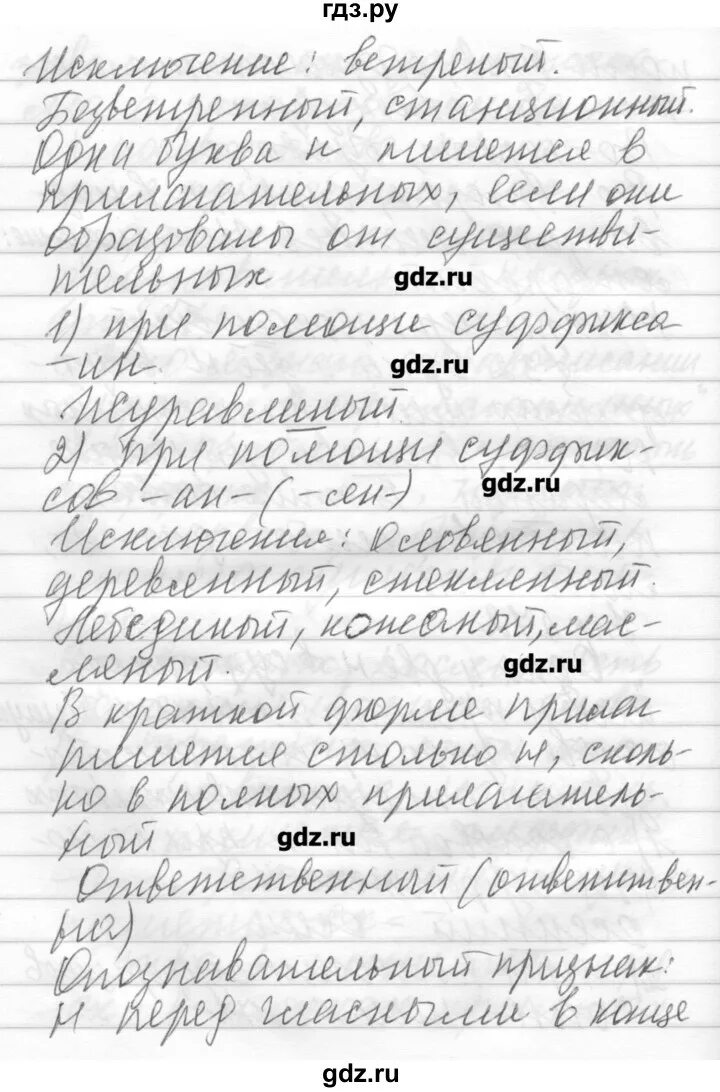 гдз.ру
Исключение: ветреный.
Безветренный, станционный.
Одна буква н пишется в
прилагательных, если они
образованы от существи-
тельных
gdz.ru
1) при помощи суффикса
-ин.
gdz.ru
Журавлиный.
2) При помощи суффик-
сов -ан- (-ян-)
gdz.ru
Исключения: Оловянный,
деревянный, стеклянный.
Лебединый, кожаный, мас-
ляный.
gdz.ru
В краткой форме прилаг
пишется столько н, сколь-
ко в полных прилагатель-
ный
gdz.ru
Ответственный (ответствен-
на)
Опознавательный признак:
н перед гласными в конце
gdz.ru